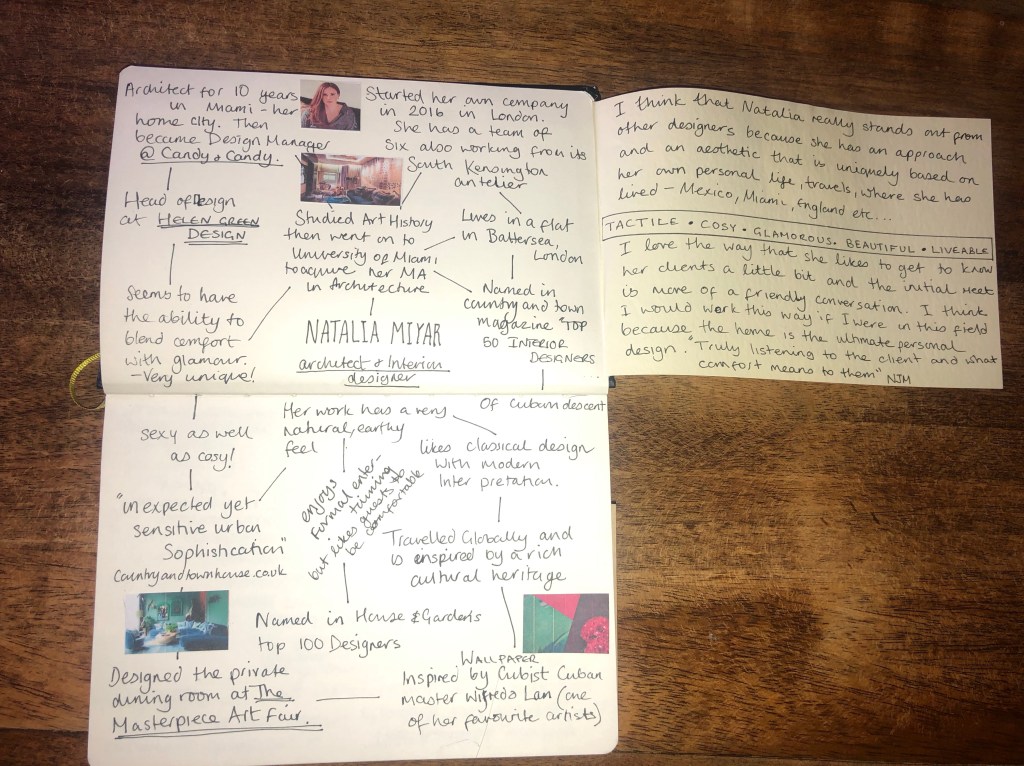 Architect for 10 years
in Miami - her
home city. Then
became Design Manager
@ Candy & Candy.
Started her own company
in 2016 in London.
She has a team of
six also working from its
South Kensington
antelier
Head of Design
at HELEN GREEN
DESIGN
Studied Art History
then went on to
University of Miami
to acquire her MA
in Architecture
Lives in a flat
in Battersea,
London
Seems to have
the ability to
blend comfort
with glamour.
- Very unique!
NATALIA MIYAR
architect & Interior
designer
Named in
country and town
magazine "TOP
50 INTERIOR
DESIGNERS
Of Cuban descent
sexy as well
as cosy!
Her work has a very
natural, earthy
feel
likes classical design
with modern
Inter pretation.
enjoys
Formal enter-
taining
but likes guests to
be comfortable
"unexpected yet
sensitive urban
Sophistication"
Countryandtownhouse.co.uk
Travelled Globally and
is inspired by a rich
cultural heritage
Named in House & Gardens
top 100 Designers
Designed the private
dining room at The
Masterpiece Art Fair.
WALLPAPER
Inspired by Cubist Cuban
master Wifredo Lan (one
of her favourite artists)
I think that Natalia really stands out from
other designers because she has an approach
and an aesthetic that is uniquely based on
her own personal life, travels, where she has
lived - Mexico, Miami, England etc...
TACTILE • COSY • GLAMOROUS • BEAUTIFUL • LIVEABLE
I love the way that she likes to get to know
her clients a little bit and the initial meet
is more of a friendly conversation. I think
I would work this way if I were in this field
because the home is the ultimate personal
design. "Truly listening to the client and what
comfort means to them" NJM